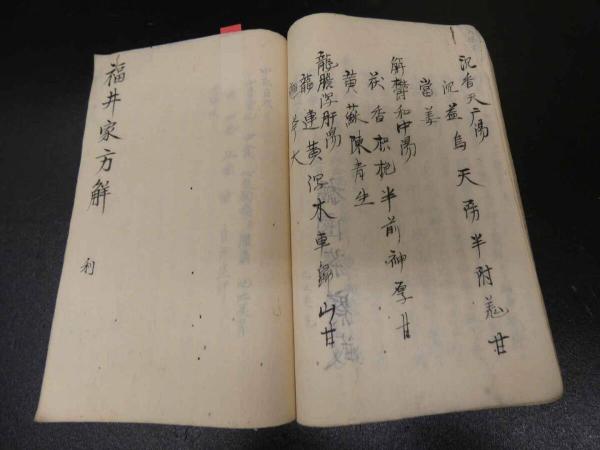 沉香天广湯
沉益烏天防半附羌甘
當姜
解鬱和中湯
茯香枳梔半前神厚甘
黄蘇陳青生
龍膽瀉肝湯
龍連黄瀉木車歸山甘
芩大
福井家方解
利